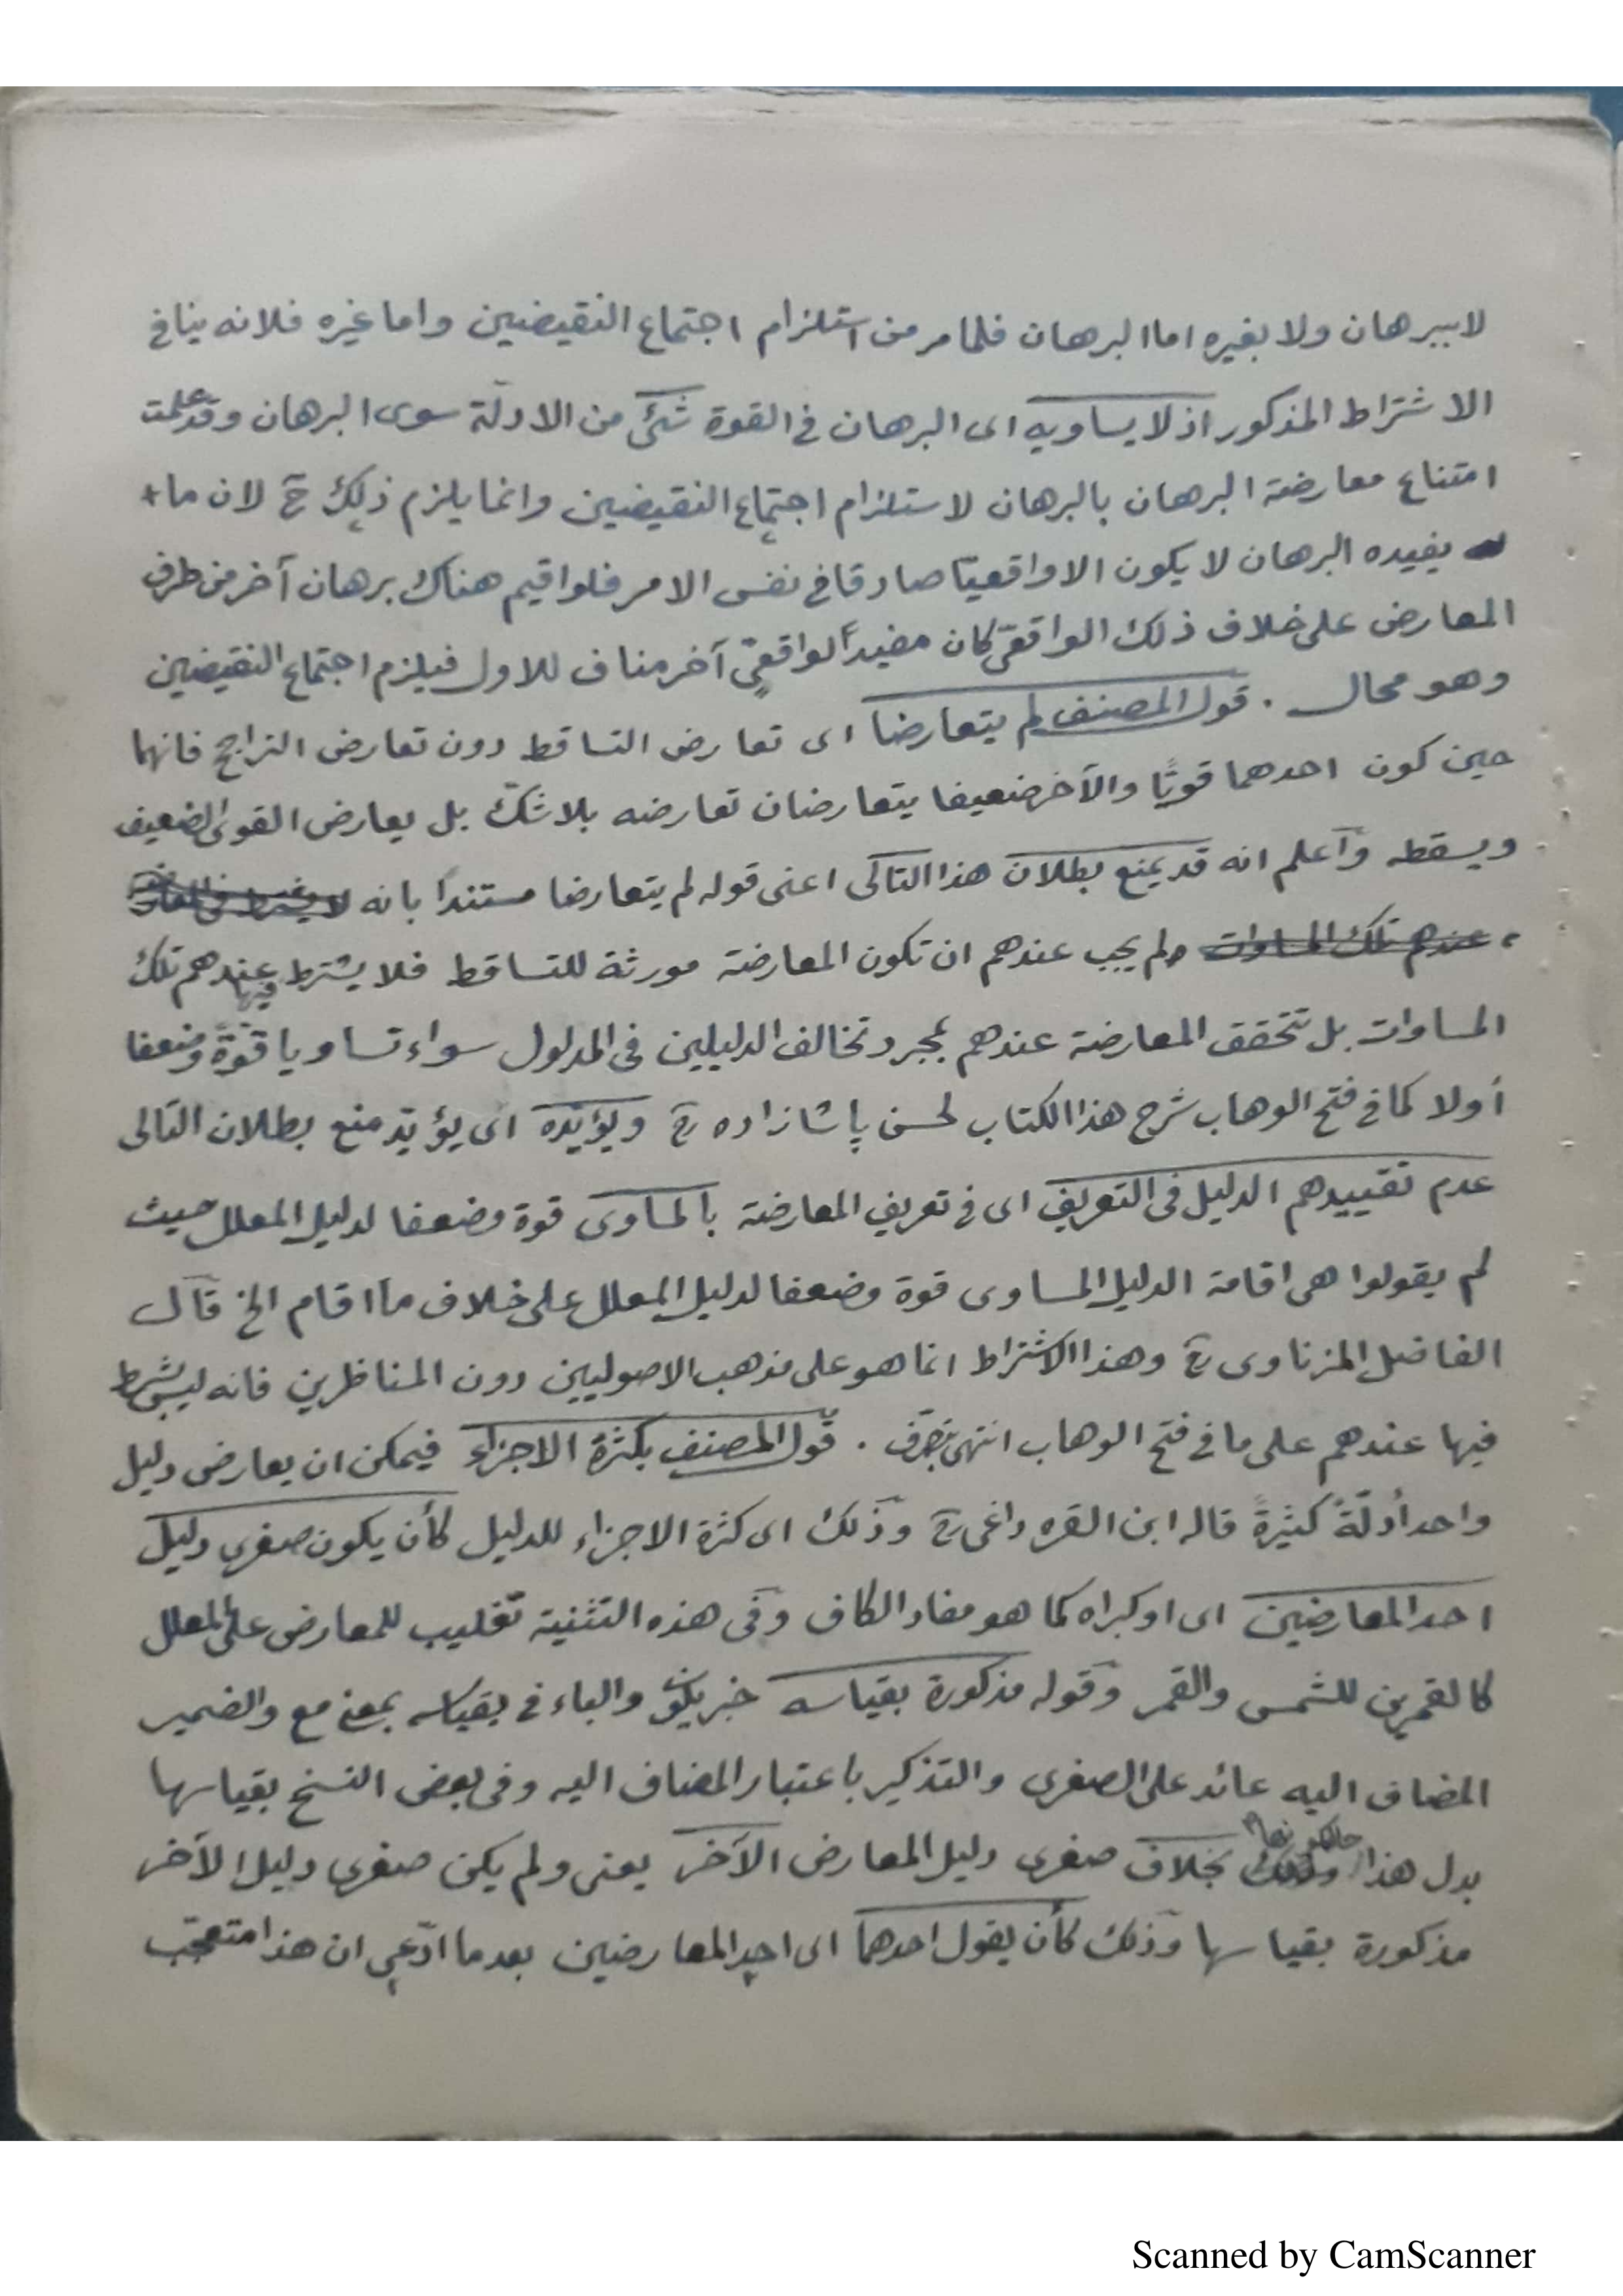 لا ببرهان ولا بغيره اما البرهان فلما مر من استلزام اجتماع النقيضين واما غيره فلانه ينافى
الاشتراط المذكور اذ لا يساويه اى البرهان فى القوة شئ من الادلّة سوى البرهان وقد علمت
امتناع معارضة البرهان بالبرهان لاستلزام اجتماع النقيضين وانما يلزم ذلك ح لان ما
يفيده البرهان لا يكون الا واقعيّا صادقا فى نفس الامر فلو اقيم هناك برهان آخر من طرف
المعارض على خلاف ذلك الواقعىّ كان مفيداً لواقعىّ آخر مناف للاول فيلزم اجتماع النقيضين
وهو محال . قول المصنف لم يتعارضا اى تعارض التساقط دون تعارض التراجح فانهما
حين كون احدهما قويّا والآخر ضعيفا يتعارضان تعارضه بلا شكّ بل يعارض القوى الضعيف
ويسقطه وآعلم انه قد يمنع بطلان هذا التالى اعنى قوله لم يتعارضا مستنداً بانه
لم يجب عندهم ان تكون المعارضة مورثة للتساقط فلا يشترط فيها عندهم تلك
المساوات بل تتحقق المعارضة عندهم بمجرد تخالف الدليلين فى المدلول سواء تساويا قوّةً وضعفا
أولا كما فى فتح الوهاب شرح هذا الكتاب لحسن پاشا زاده رح ويؤيّده اى يؤيّد منع بطلان التالى
عدم تقييدهم الدليل فى التعريف اى فى تعريف المعارضة بالمساوى قوة وضعفا لدليل المعلل حيث
لم يقولوا هى اقامة الدليل المساوى قوة وضعفا لدليل المعلل على خلاف ما اقام الخ قال
الفاضل المزناوى رح وهذا الاشتراط انما هو على مذهب الاصوليين دون المناظرين فانه ليس بشرط
فيها عندهم على ما فى فتح الوهاب انتهى بتصرّف . قول المصنف بكثرة الاجزاء فيمكن ان يعارض دليل
واحد أدلّةً كثيرةً قاله ابن القره داغى رح وذلك اى كثرة الاجزاء للدليل كأن يكون صغرى دليل
احد المعارضين اى او كبراه كما هو مفاد الكاف وفى هذه التثنية تغليب للمعارض على المعلل
كالقمرين للشمس والقمر وقوله مذكورة بقياسه خبر يكون والباء فى بقياسه بمعنى مع والضمير
المضاف اليه عائد على الصغرى والتذكير باعتبار المضاف اليه وفى بعض النسخ بقياسها
بدل هذا بخلاف صغرى دليل المعارض الآخر يعنى ولم يكن صغرى دليل الآخر
مذكورة بقياسها وذلك كأن يقول احدهما اى احد المعارضين بعد ما ادّعى ان هذا متعجّب
Scanned by CamScanner